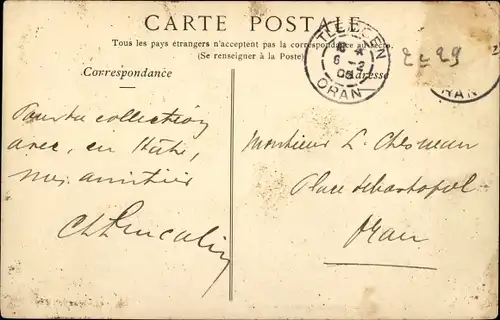 CARTE POSTALE
Tous les pays étrangers n'acceptent pas la correspondance au recto.
(Se renseigner à la Poste)
Correspondance
Adresse
TLEMCEN
6 -2
ORAN
2 = 29
RAN
Pour ta collection
avec, en hâte,
mes amitiés
Monsieur L. Chesneau
Place Sébastopol
Oran